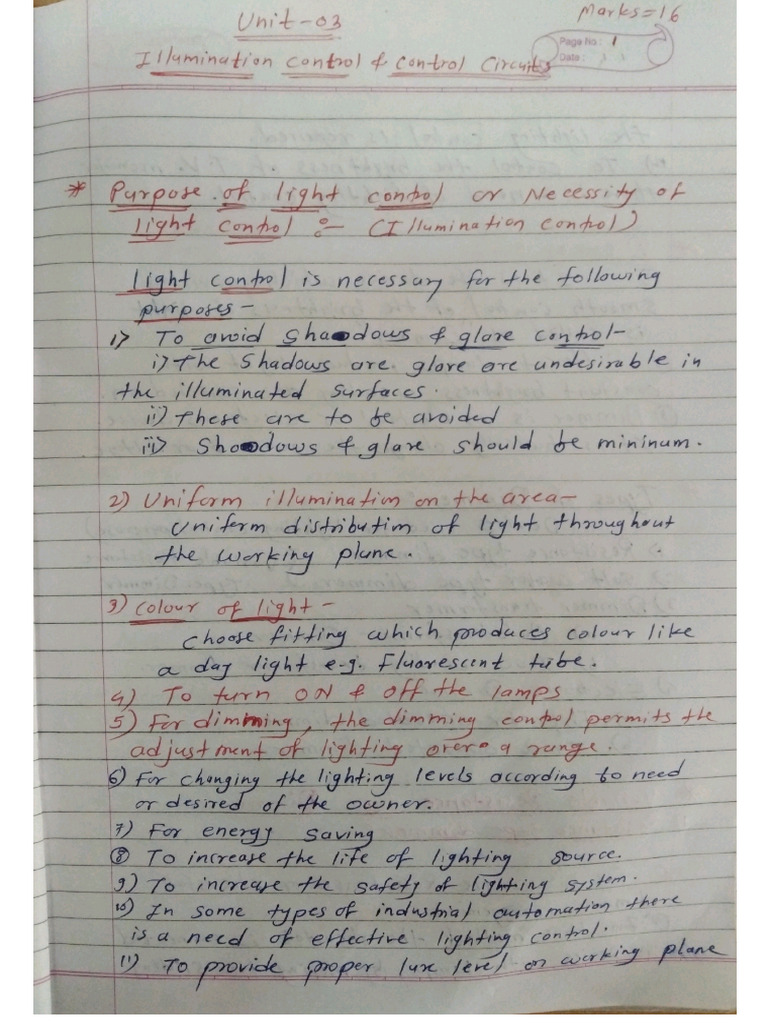 Unit-03
Marks=16
Page No.: 1
Date:
Illumination control & control Circuits
* Purpose of light control or Necessity of
light control :- (Illumination control)
light control is necessary for the following
purposes-
1) To avoid Shadows & glare control-
i) The Shadows are glare are undesirable in
the illuminated surfaces.
ii) These are to be avoided
iii) Shadows & glare should be mininum.
2) Uniform illumination on the area-
Uniform distribution of light throughout
the working plane.
3) Colour of light-
choose fitting which produces colour like
a day light e.g. Fluorescent tube.
4) To turn ON & off the lamps
5) For dimming, the dimming control permits the
adjustment of lighting over a range.
6) For changing the lighting levels according to need
or desired of the owner.
7) For energy saving
8 To increase the life of lighting source.
9) To increase the safety of lighting system.
10) In some types of industrial automation there
is a need of effective lighting control.
11) To provide proper lux level on working plane